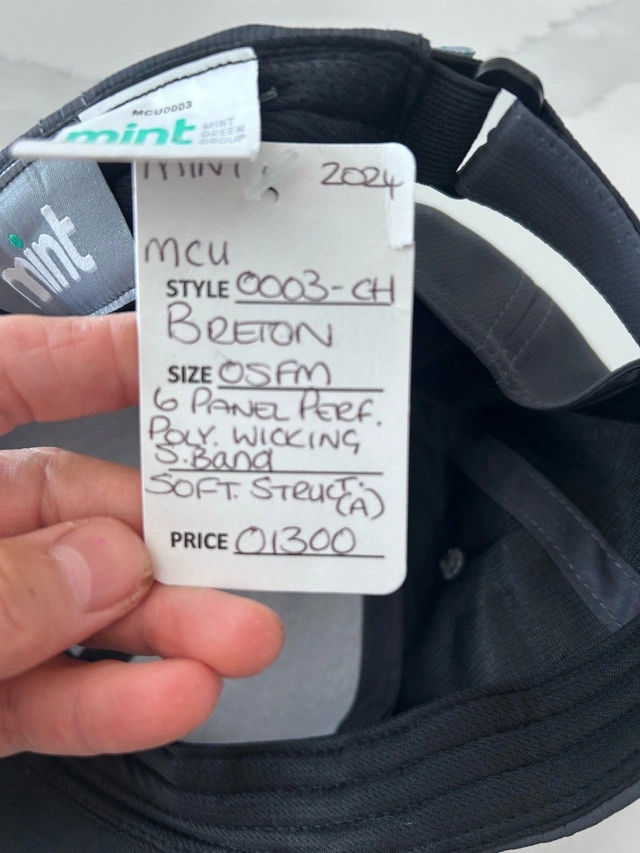 MCU0003
mint MINT
GREEN
GROUP
mint
MINT 2024
MCU
STYLE 0003-CH
BRETON
SIZE OSFM
6 PANEL PERF.
POLY. WICKING
S.Band
SOFT. STRUCT.
(A)
PRICE 01300